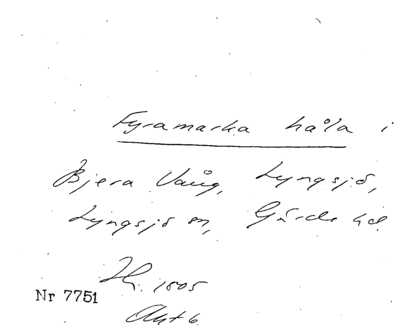 Fyramarka håla i
Bjera Vång, Lyngsjö,
Lyngsjö sn, Gärds hd.
Hr. 1805
Nr 7751
Akt 6.